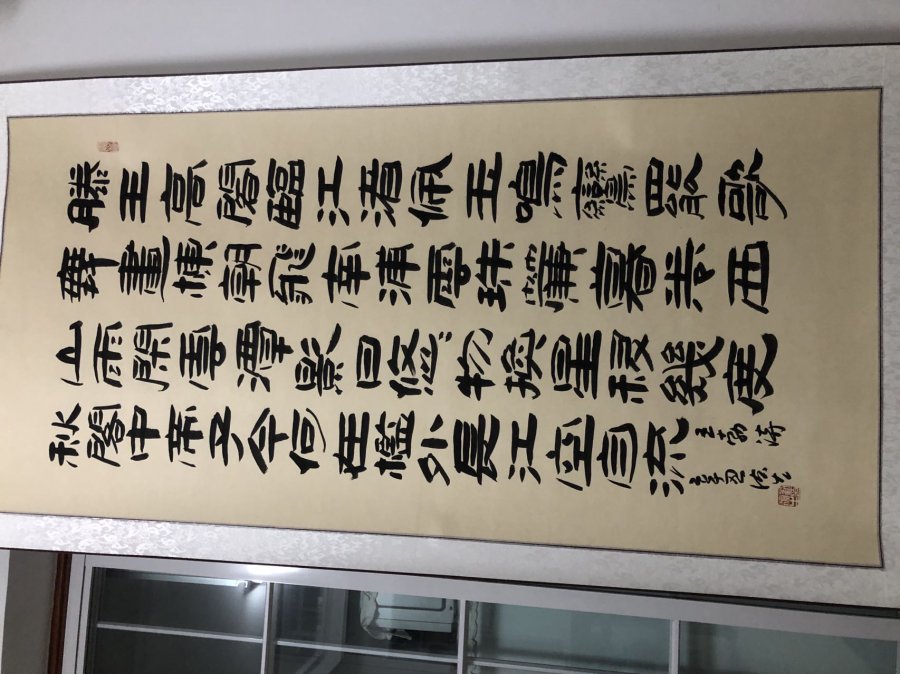 滕王高閣臨江渚佩玉鳴鸞罷歌
舞畫棟朝飛南浦雲珠簾暮卷西
山雨閑雲潭影日悠〻物換星移幾度
秋閣中帝子今何在檻外長江空自流
王勃詩